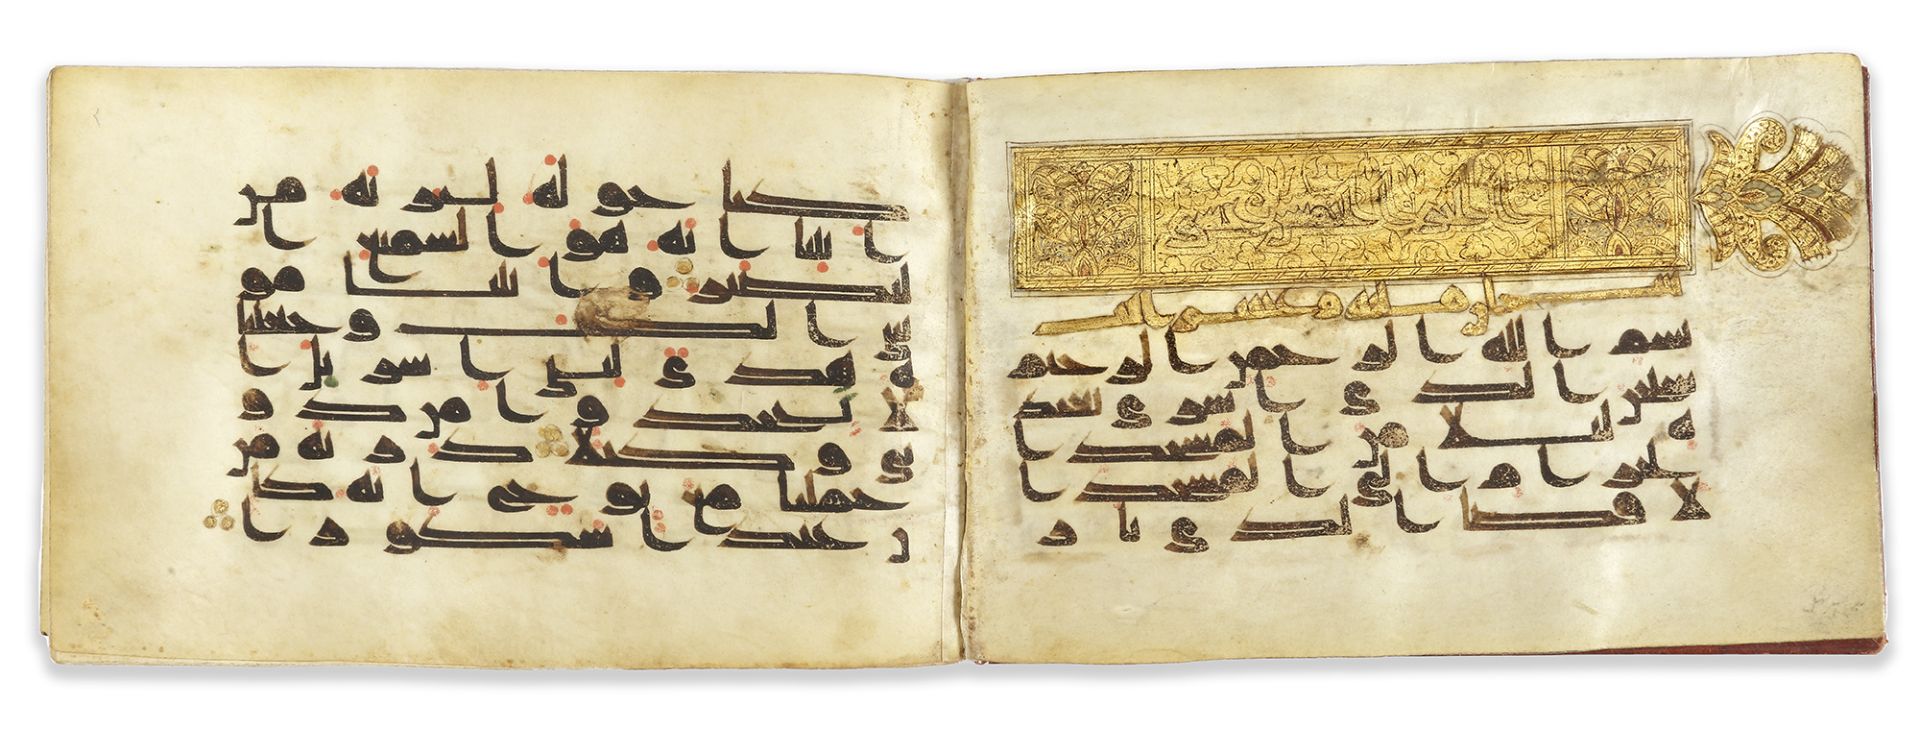 بسم الله الرحمن الرحيم
سبحن الذي اسرى بعبد
ه ليلا من المسجد ا
لحرام الى المسجد ا
لاقصا الذي بار
كنا حوله لنريه من
ايتنا انه هو السميع ا
لبصير واتينا مو
سى الكتب وجعلنا
ه هدى لبني اسريل ا
لا تتخذوا من دو
ني وكيلا ذرية من
حملنا مع نوح انه كا
ن عبدا شكورا